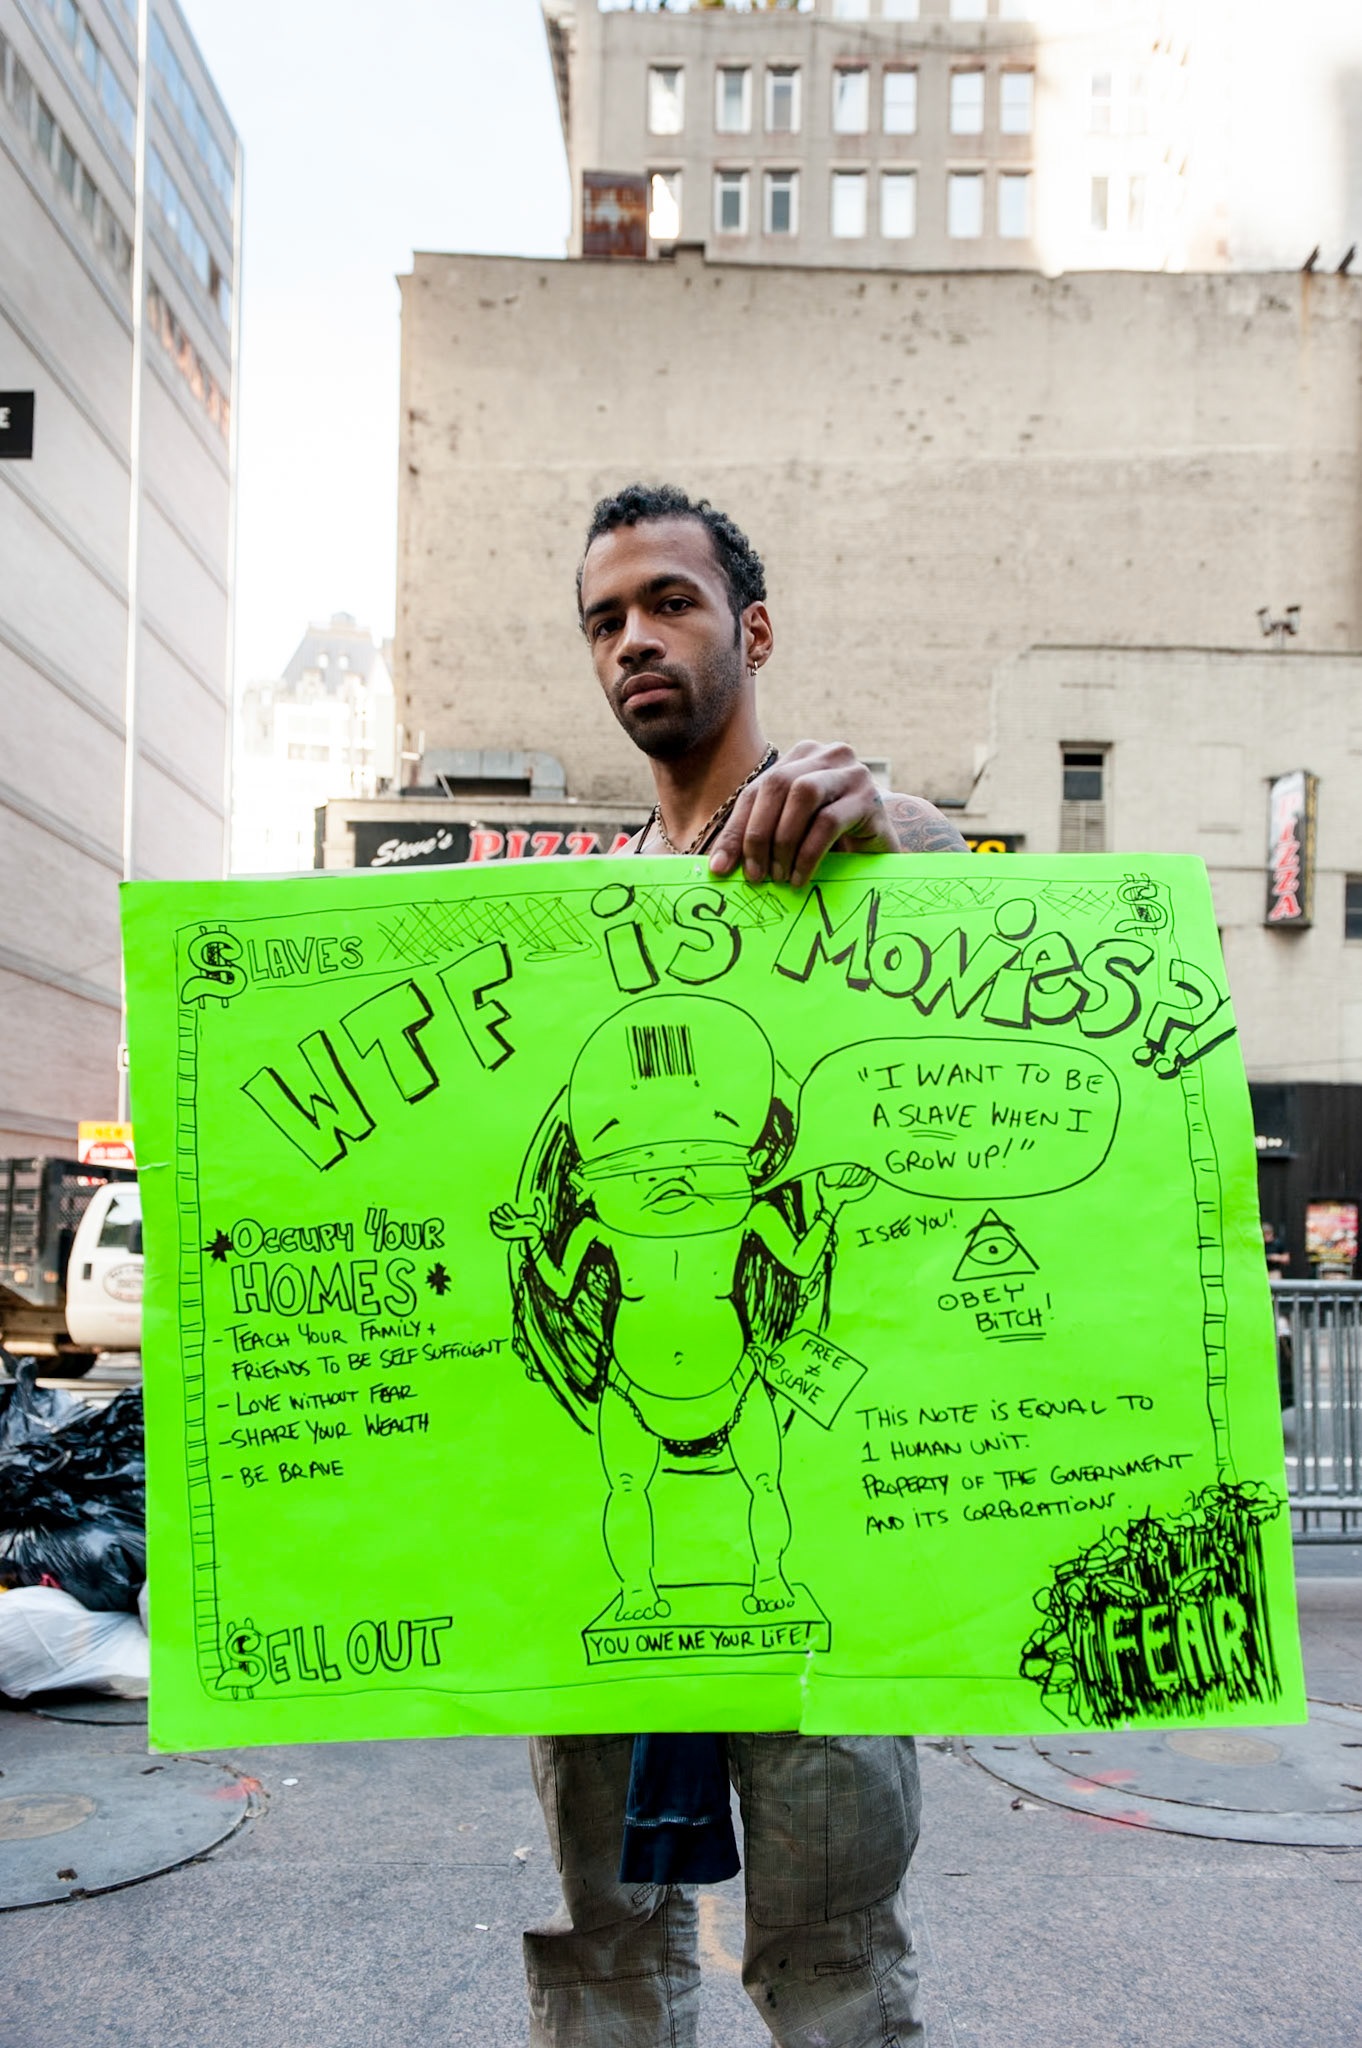 E
Steve's PIZZA
KS
PIZZA
$LAVES
$
WTF iS MONiES?!
"I WANT TO BE
A SLAVE WHEN I
GROW UP!"
I SEE YOU!
OBEY
BiTCH!
*OCCUPY YOUR
HOMES*
- TEACH YOUR FAMILY +
FRIENDS TO BE SELF SUFFICIENT
- LOVE WITHOUT FEAR
- SHARE YOUR WEALTH
- BE BRAVE
FREE
≠
SLAVE
THIS NOTE IS EQUAL TO
1 HUMAN UNIT.
PROPERTY OF THE GOVERNMENT
AND ITS CORPORATIONS.
$ELL OUT
YOU OWE ME YOUR LiFE!
FEAR